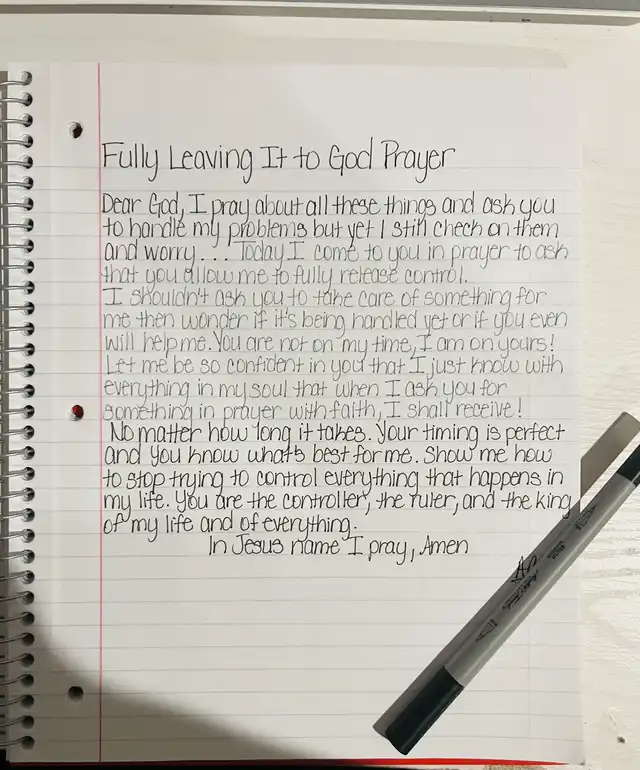 Fully Leaving It to God Prayer
Dear God, I pray about all these things and ask you
to handle my problems but yet I still check on them
and worry... Today I come to you in prayer to ask
that you allow me to fully release control.
I shouldn't ask you to take care of something for
me then wonder if it's being handled yet or if you even
will help me. You are not on my time, I am on yours!
Let me be so confident in you that I just know with
everything in my soul that when I ask you for
something in prayer with faith, I shall receive!
No matter how long it takes. Your timing is perfect
and you know what's best for me. Show me how
to stop trying to control everything that happens in
my life. You are the controller, the ruler, and the king
of my life and of everything.
In Jesus name I pray, Amen